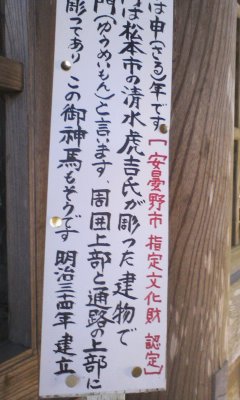 は申(さる)年です[安曇野市 指定文化財 認定]
は松本市の清水虎吉氏が彫った建物で
門(ゆうめいもん)と言います、周囲上部と通路の上部に
彫ってあり この御神馬もそうです 明治三十四年 建立